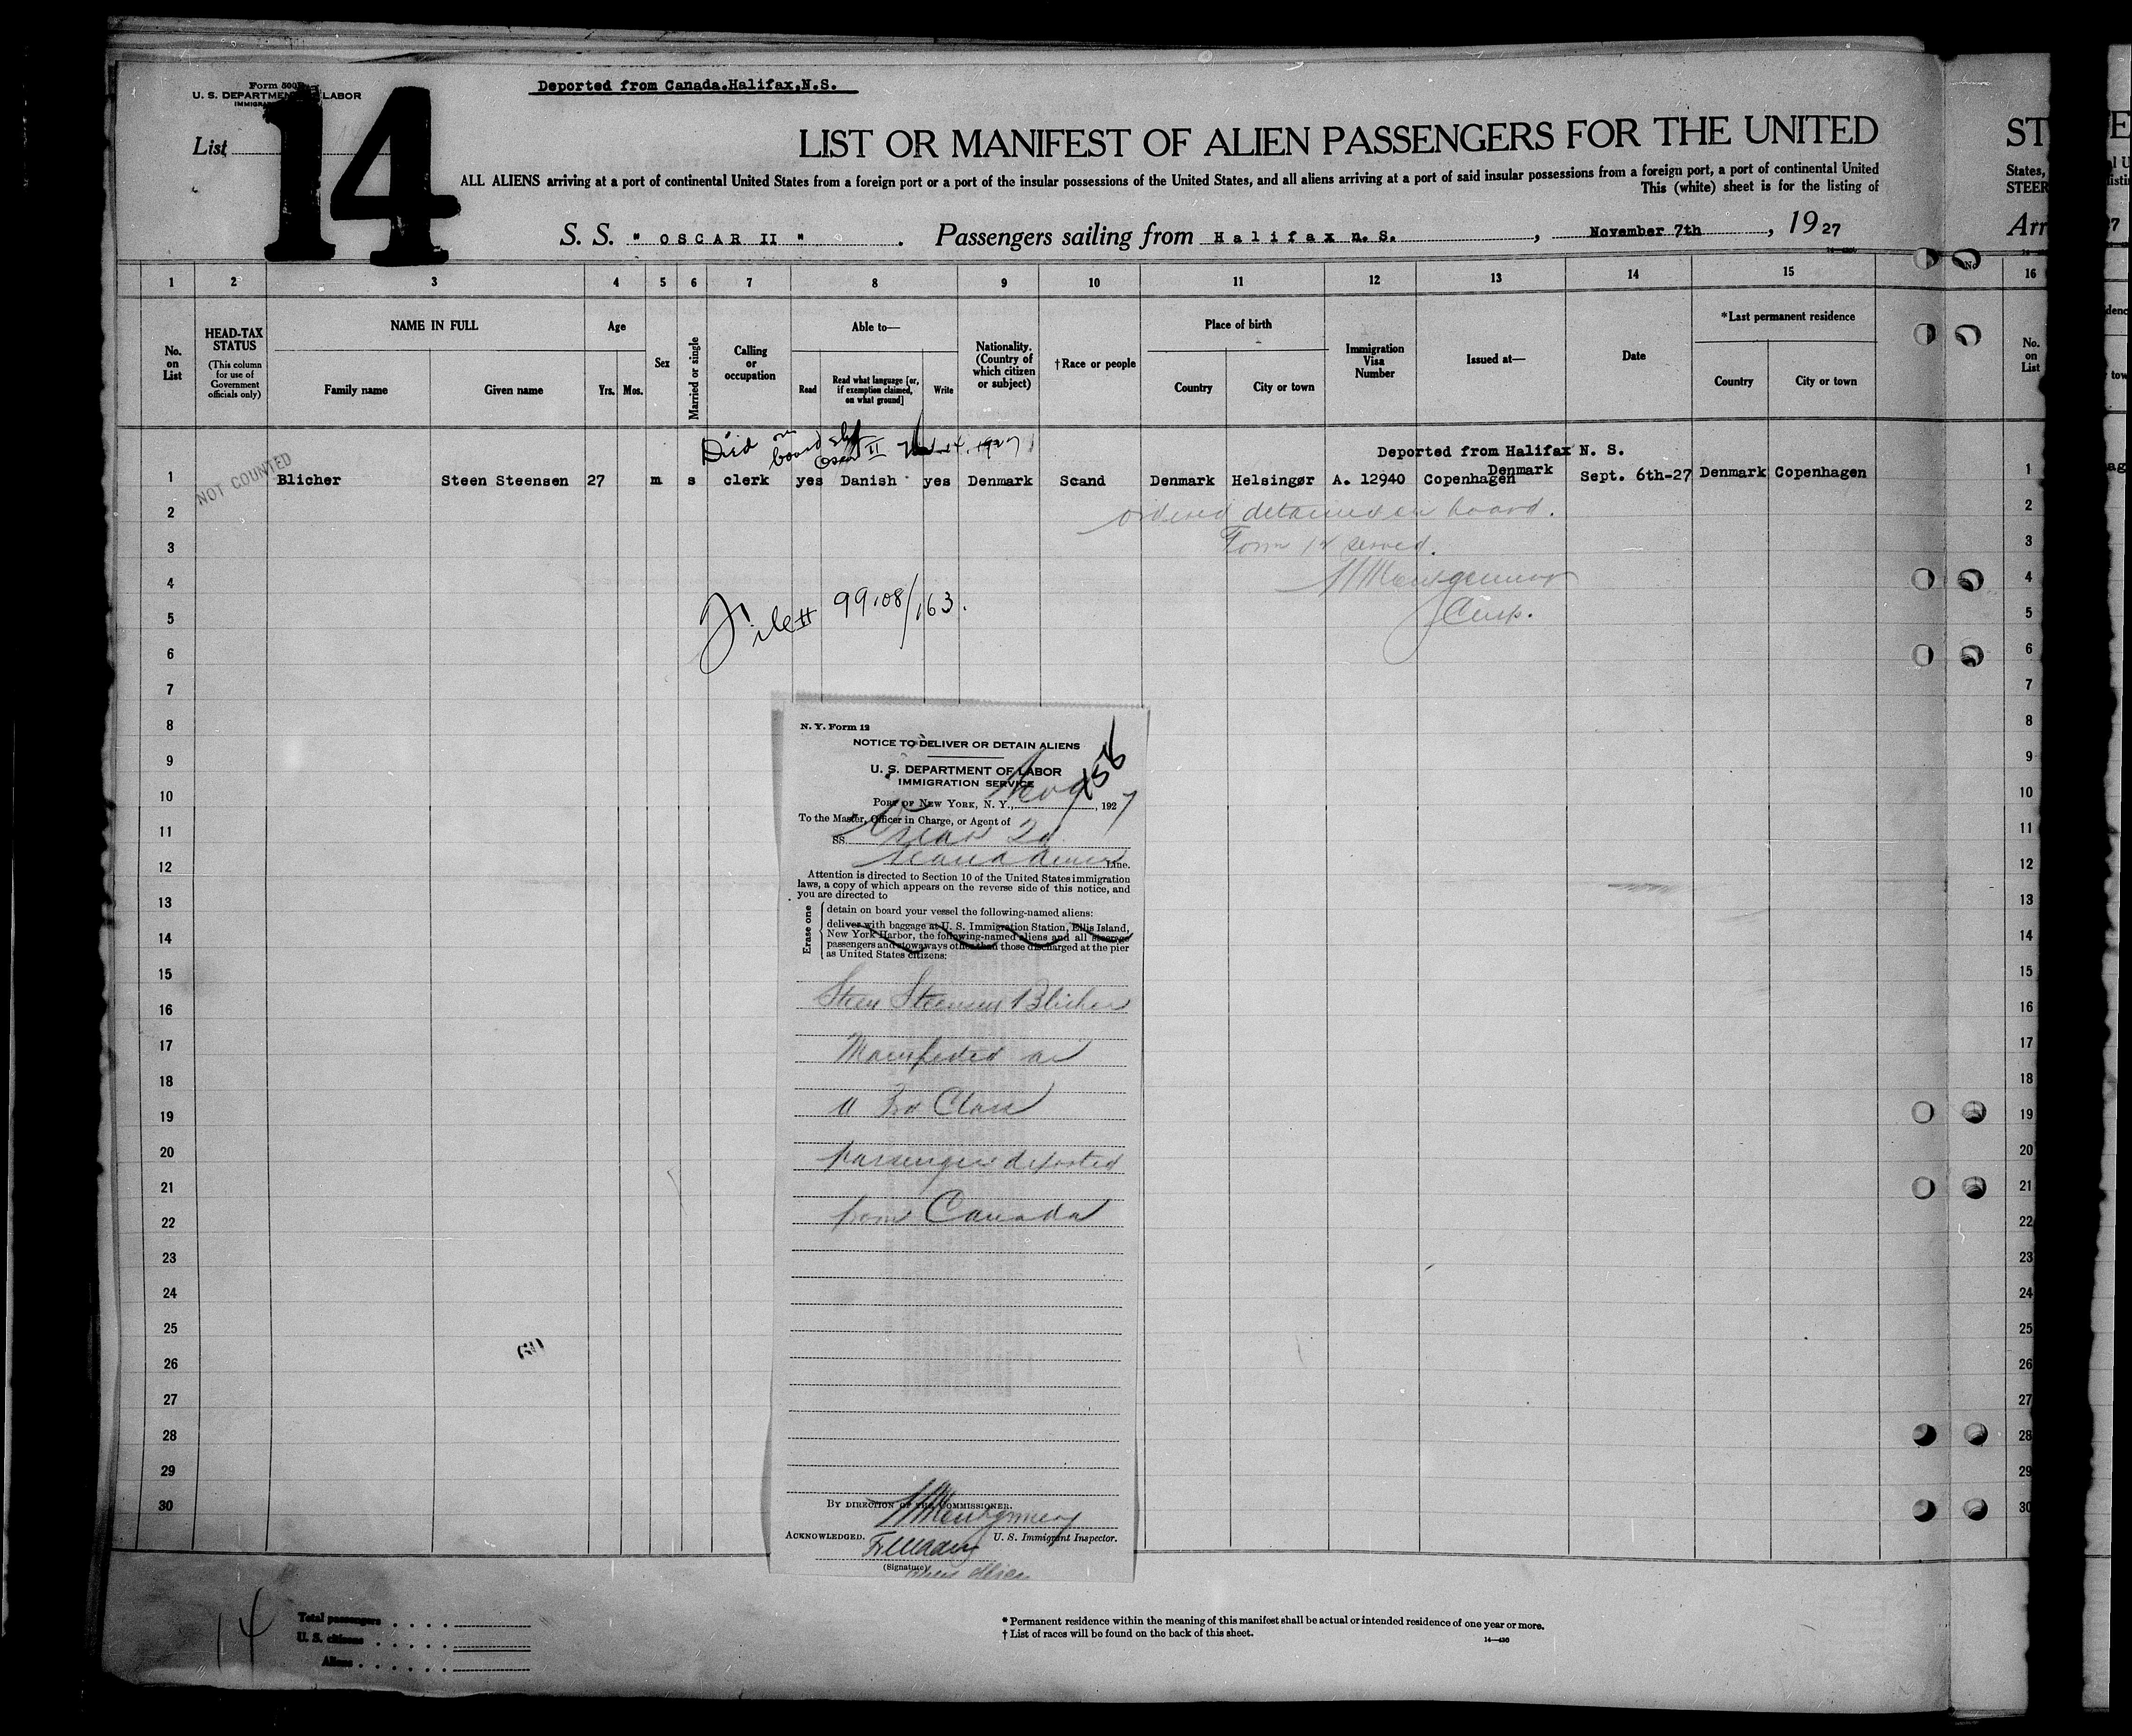 Form 500
U. S. DEPARTMENT LABOR
Deported from Canada.Halifax,N.S.
List
14
LIST OR MANIFEST OF ALIEN PASSENGERS FOR THE UNITED
ST
ALL ALIENS arriving at a port of continental United States from a foreign port or a port of the insular possessions of the United States, and all aliens arriving at a port of said insular possessions from a foreign port, a port of continental United
States,
This (white) sheet is for the listing of
STEER
S. S. " OSCAR II " . Passengers sailing from Halifax n. S. , November 7th , 19 27
Arr
1 2 3 4 5 6 7 8 9 10 11 12 13 14 15 16
No. on List
HEAD-TAX STATUS
(This column for use of Government officials only)
NAME IN FULL
Family name
Given name
Age
Yrs. Mos.
Sex
Married or single
Calling or occupation
Able to—
Read
Read what language [or, if exemption claimed, on what ground]
Write
Nationality. (Country of which citizen or subject)
†Race or people
Place of birth
Country
City or town
Immigration Visa Number
Issued at—
Date
*Last permanent residence
Country
City or town
No. on List
Died on board Oscar II 14, 1927
Deported from Halifax N. S.
NOT COUNTED
1 Blicher Steen Steensen 27 m s clerk yes Danish yes Denmark Scand Denmark Helsingør A. 12940 Copenhagen Denmark Sept. 6th-27 Denmark Copenhagen 1
2 ordered detained on board. 2
3 Form 12 served. 3
4 Montgomery 4
5 File # 99108/163. Insp. 5
6 6
7 7
8 8
9 9
10 10
11 11
12 12
13 13
14 14
15 15
16 16
17 17
18 18
19 19
20 20
21 21
22 22
23 23
24 24
25 25
26 26
27 27
28 28
29 29
30 30
N. Y. Form 12
NOTICE TO DELIVER OR DETAIN ALIENS
U. S. DEPARTMENT OF LABOR
IMMIGRATION SERVICE
PORT OF NEW YORK, N. Y., Nov , 1927
To the Master, Officer in Charge, or Agent of
SS. Oscar 2d
Scand Amer Line.
Attention is directed to Section 10 of the United States immigration
laws, a copy of which appears on the reverse side of this notice, and
you are directed to
Erase one
detain on board your vessel the following-named aliens:
deliver with baggage at U. S. Immigration Station, Ellis Island,
New York Harbor, the following-named aliens and all steerage
passengers and stowaways other than those discharged at the pier
as United States citizens:
Steen Steensen Blicher
Manifested as
a 3rd Class
passenger deported
from Canada
BY DIRECTION OF THE COMMISSIONER.
Montgomery
ACKNOWLEDGED. U. S. Immigrant Inspector.
(Signature)
14
Total passengers
U. S. citizens
Aliens
* Permanent residence within the meaning of this manifest shall be actual or intended residence of one year or more.
† List of races will be found on the back of this sheet.
14—430